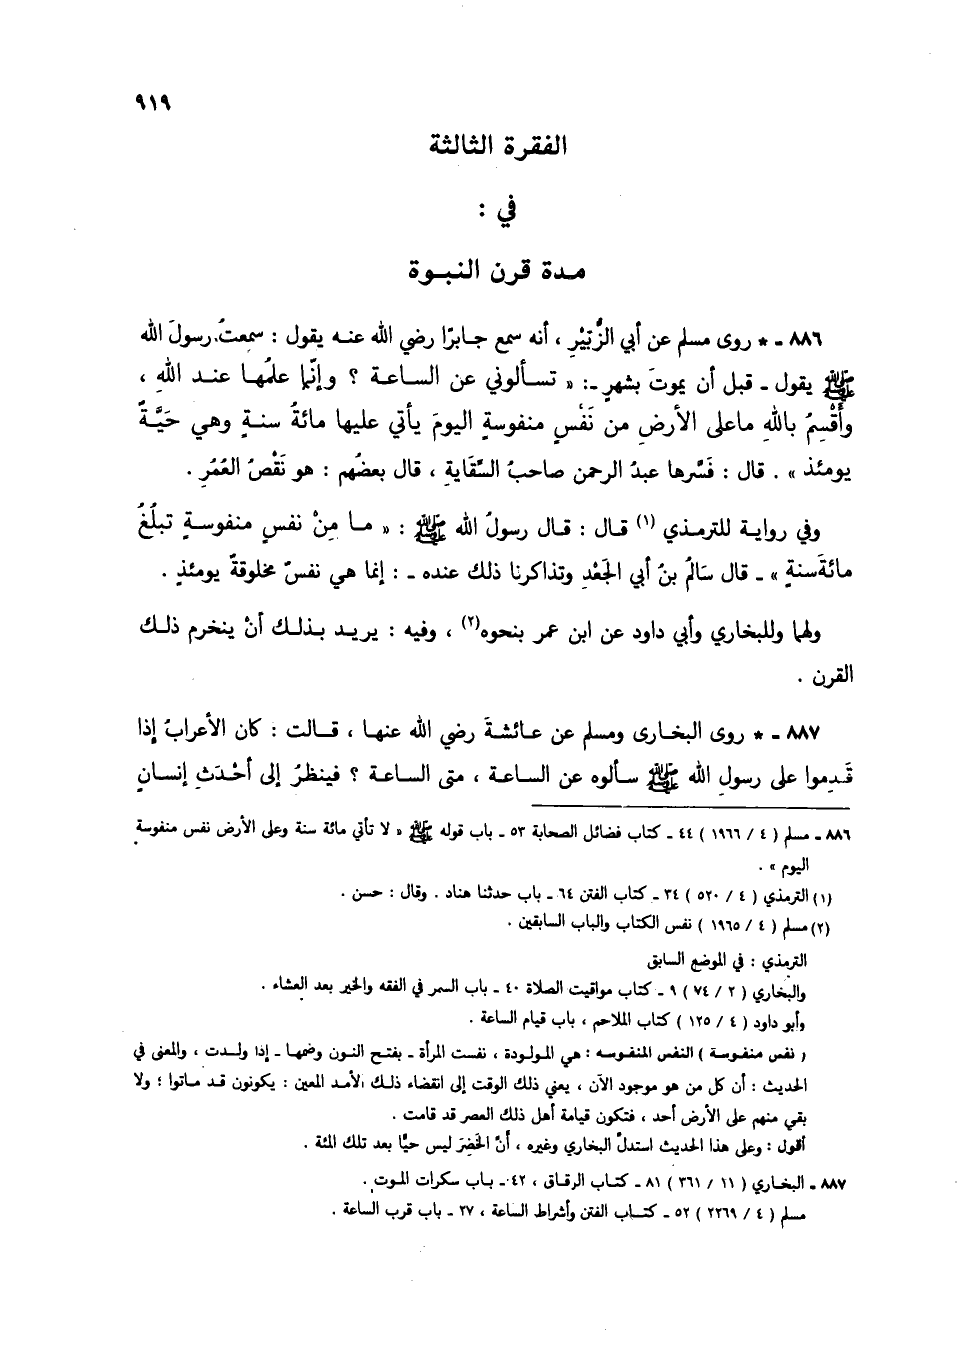 ٩١٩
الفقرة الثالثة
في :
مدة قرن النبوة
٨٨٦ ـ * روى مسلم عن أبي الزُّبَيْرِ ، أنه سمع جابرًا رضي الله عنه يقول : سمعتُ رسولَ الله
ﷺ يقول ـ قبل أن يموتَ بشهرٍ ـ : « تسألوني عن الساعة ؟ وإنَّما علمُها عند اللهِ ،
وأُقْسِمُ باللهِ ماعلى الأرضِ من نَفْسٍ منفوسةٍ اليومَ يأتي عليها مائةُ سنةٍ وهي حَيَّةٌ
يومئذ » . قال : فَسَّرها عبدُ الرحمن صاحبُ السِّقاية ، قال بعضُهم : هو نَقْصُ العُمُرِ .
وفي رواية للترمذي (١) قال : قال رسولُ الله ﷺ : « ما مِنْ نفسٍ منفوسةٍ تبلُغُ
مائةَ سنةٍ » ـ قال سَالمُ بنُ أبي الجَعْدِ وتذاكرنا ذلك عنده ـ : إنما هي نفسٌ مخلوقةٌ يومئذٍ .
ولهما وللبخاري وأبي داود عن ابن عمر بنحوه(٢) ، وفيه : يريد بذلك أنْ ينخرم ذلك
القرن .
٨٨٧ ـ * روى البخارى ومسلم عن عائشةَ رضي الله عنها ، قالت : كان الأعرابُ إذا
قَدِموا على رسولِ الله ﷺ سألوه عن الساعة ، متى الساعة ؟ فينظرُ إلى أَحْدَثِ إنسانٍ
٨٨٦ ـ مسلم ( ٤ / ١٩٦٦ ) ٤٤ ـ كتاب فضائل الصحابة ٥٣ ـ باب قوله ﷺ « لا تأتي مائة سنة وعلى الأرض نفس منفوسة
اليوم » .
(١) الترمذي ( ٤ / ٥٢٠ ) ٣٤ ـ كتاب الفتن ٦٤ ـ باب حدثنا هناد . وقال : حسن .
(٢) مسلم ( ٤ / ١٩٦٥ ) نفس الكتاب والباب السابقين .
الترمذي : في الموضع السابق
والبخاري ( ٢ / ٧٤ ) ٩ ـ كتاب مواقيت الصلاة ٤٠ ـ باب السمر في الفقه والخير بعد العشاء .
وأبو داود ( ٤ / ١٢٥ ) كتاب الملاحم ، باب قيام الساعة .
( نفس منفوسة ) النفس المنفوسه : هي المولودة ، نفست المرأة ـ بفتح النون وضمها ـ إذا ولدت ، والمعنى في
الحديث : أن كل من هو موجود الآن ، يعني ذلك الوقت إلى انقضاء ذلك الأمد المعين : يكونون قد ماتوا ؛ ولا
بقي منهم على الأرض أحد ، فتكون قيامة أهل ذلك العصر قد قامت .
أقول : وعلى هذا الحديث استدلَّ البخاري وغيره ، أنَّ الخَضِرَ ليس حيًّا بعد تلك المئة .
٨٨٧ ـ البخاري ( ١١ / ٣٦١ ) ٨١ ـ كتاب الرقاق ، ٤٢ ـ باب سكرات الموت .
مسلم ( ٤ / ٢٢٦٩ ) ٥٢ ـ كتاب الفتن وأشراط الساعة ، ٢٧ ـ باب قرب الساعة .